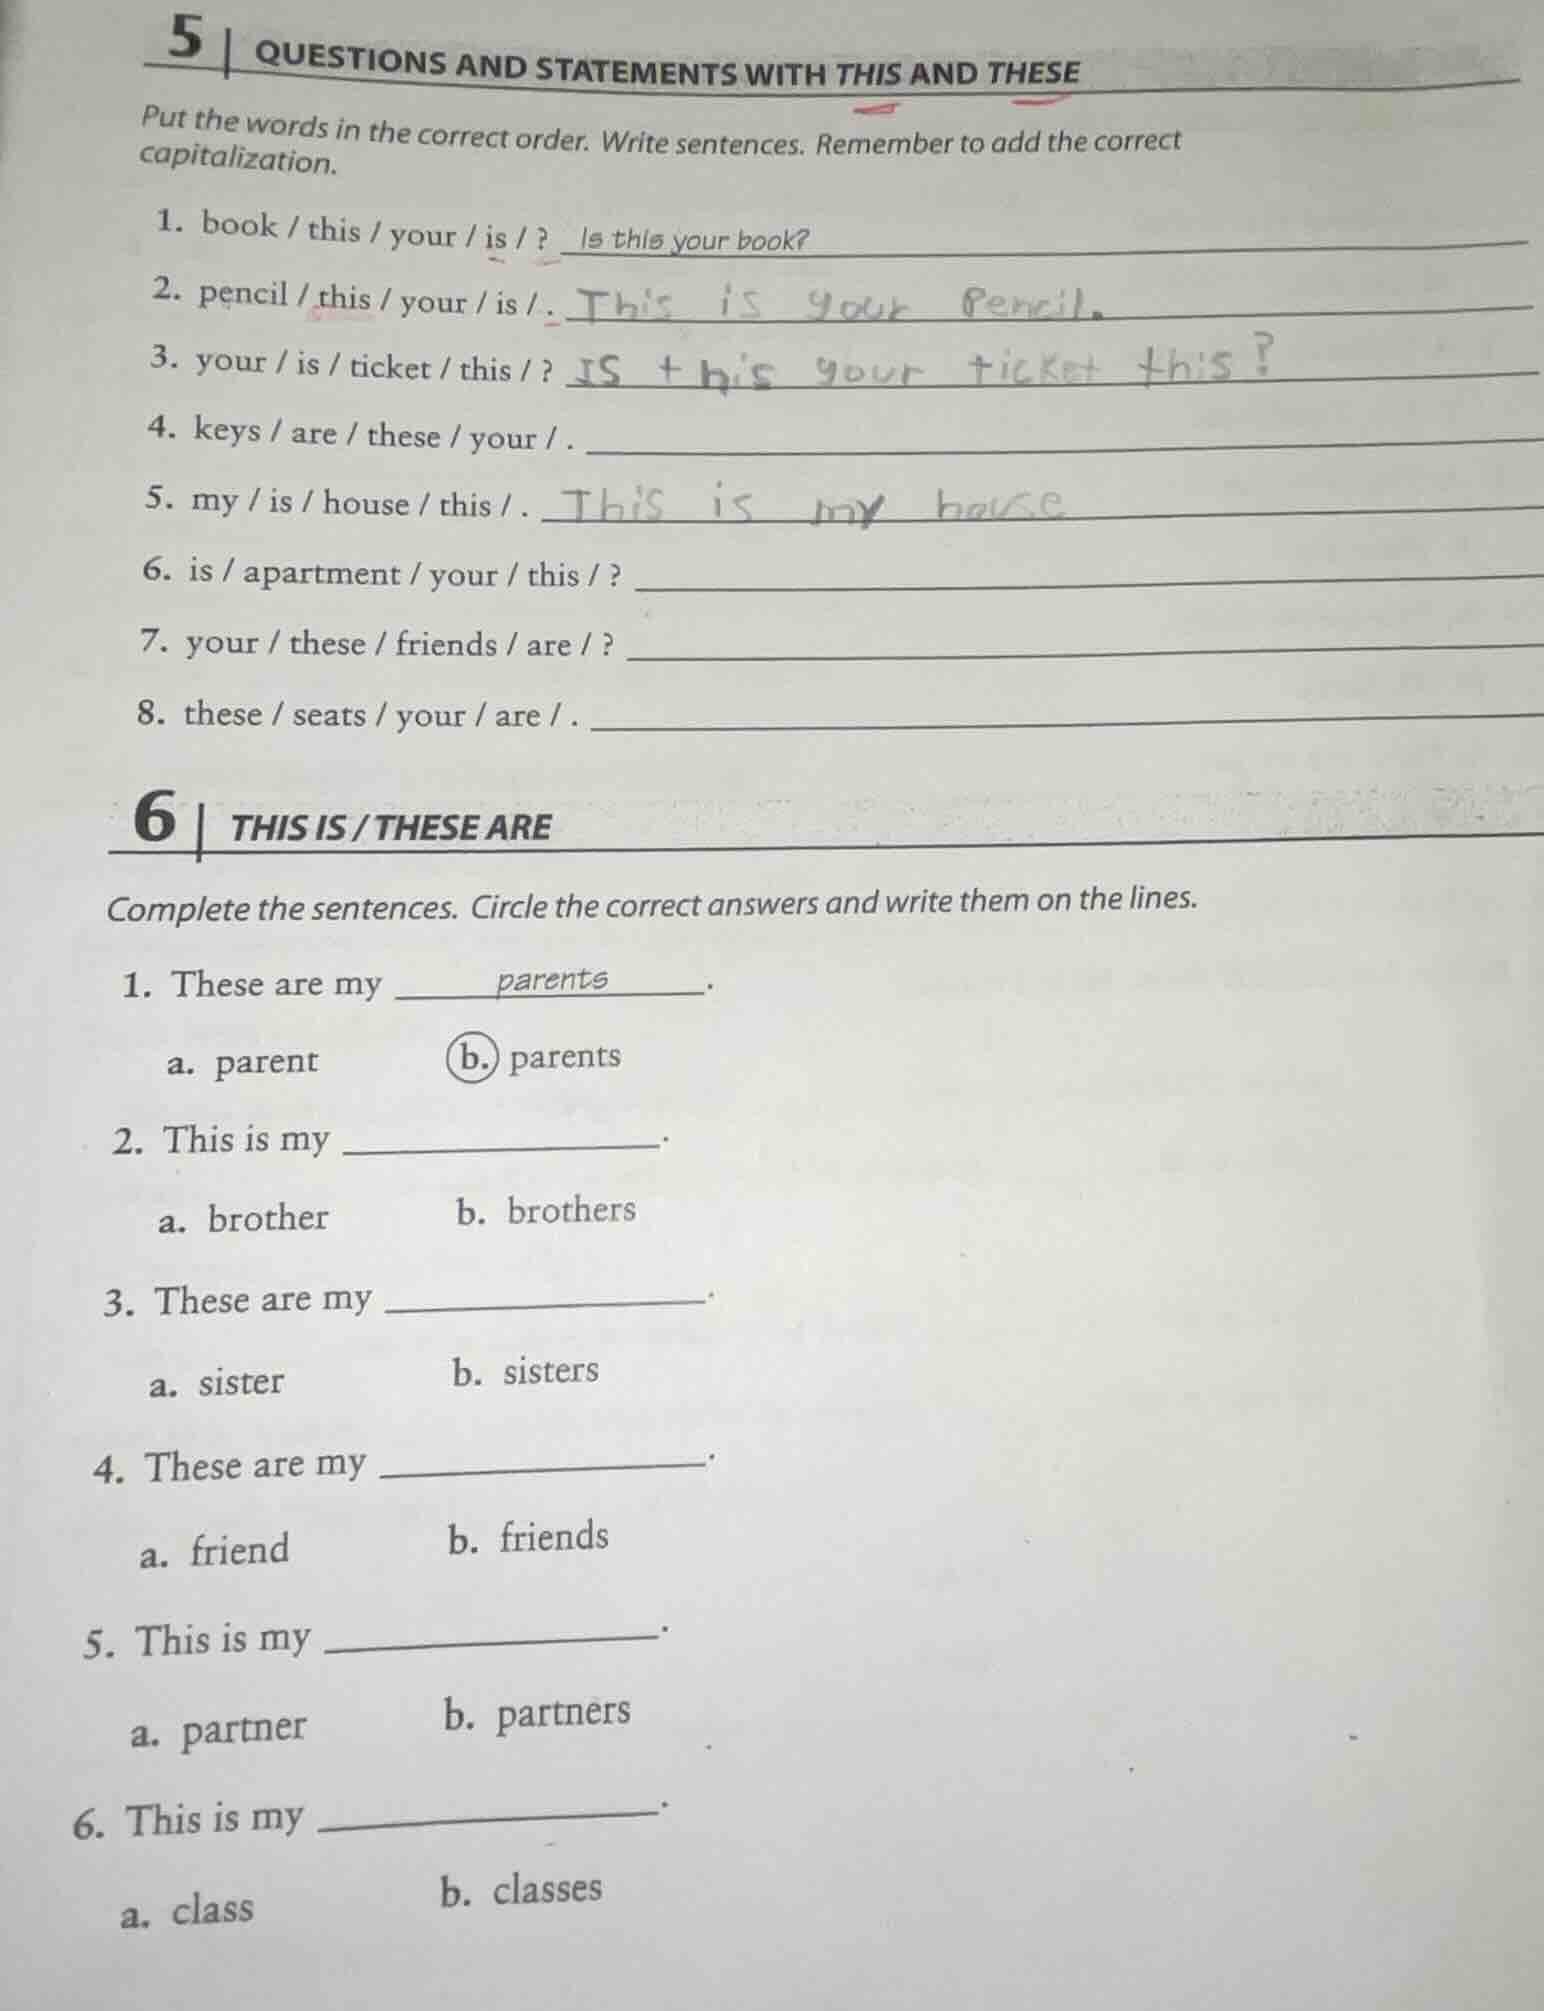 5 | QUESTIONS AND STATEMENTS WITH THIS AND THESE
Put the words in the correct order. Write sentences. Remember to add the correct
capitalization.
1. book / this / your / is / ? Is this your book?
2. pencil / this / your / is / . This is your Pencil.
3. your / is / ticket / this / ? IS this your ticket this?
4. keys / are / these / your / .
5. my / is / house / this / . This is my house
6. is / apartment / your / this / ?
7. your / these / friends / are / ?
8. these / seats / your / are / .
6 | THIS IS / THESE ARE
Complete the sentences. Circle the correct answers and write them on the lines.
1. These are my parents.
a. parent b. parents
2. This is my .
a. brother b. brothers
3. These are my .
a. sister b. sisters
4. These are my .
a. friend b. friends
5. This is my .
a. partner b. partners
6. This is my .
a. class b. classes